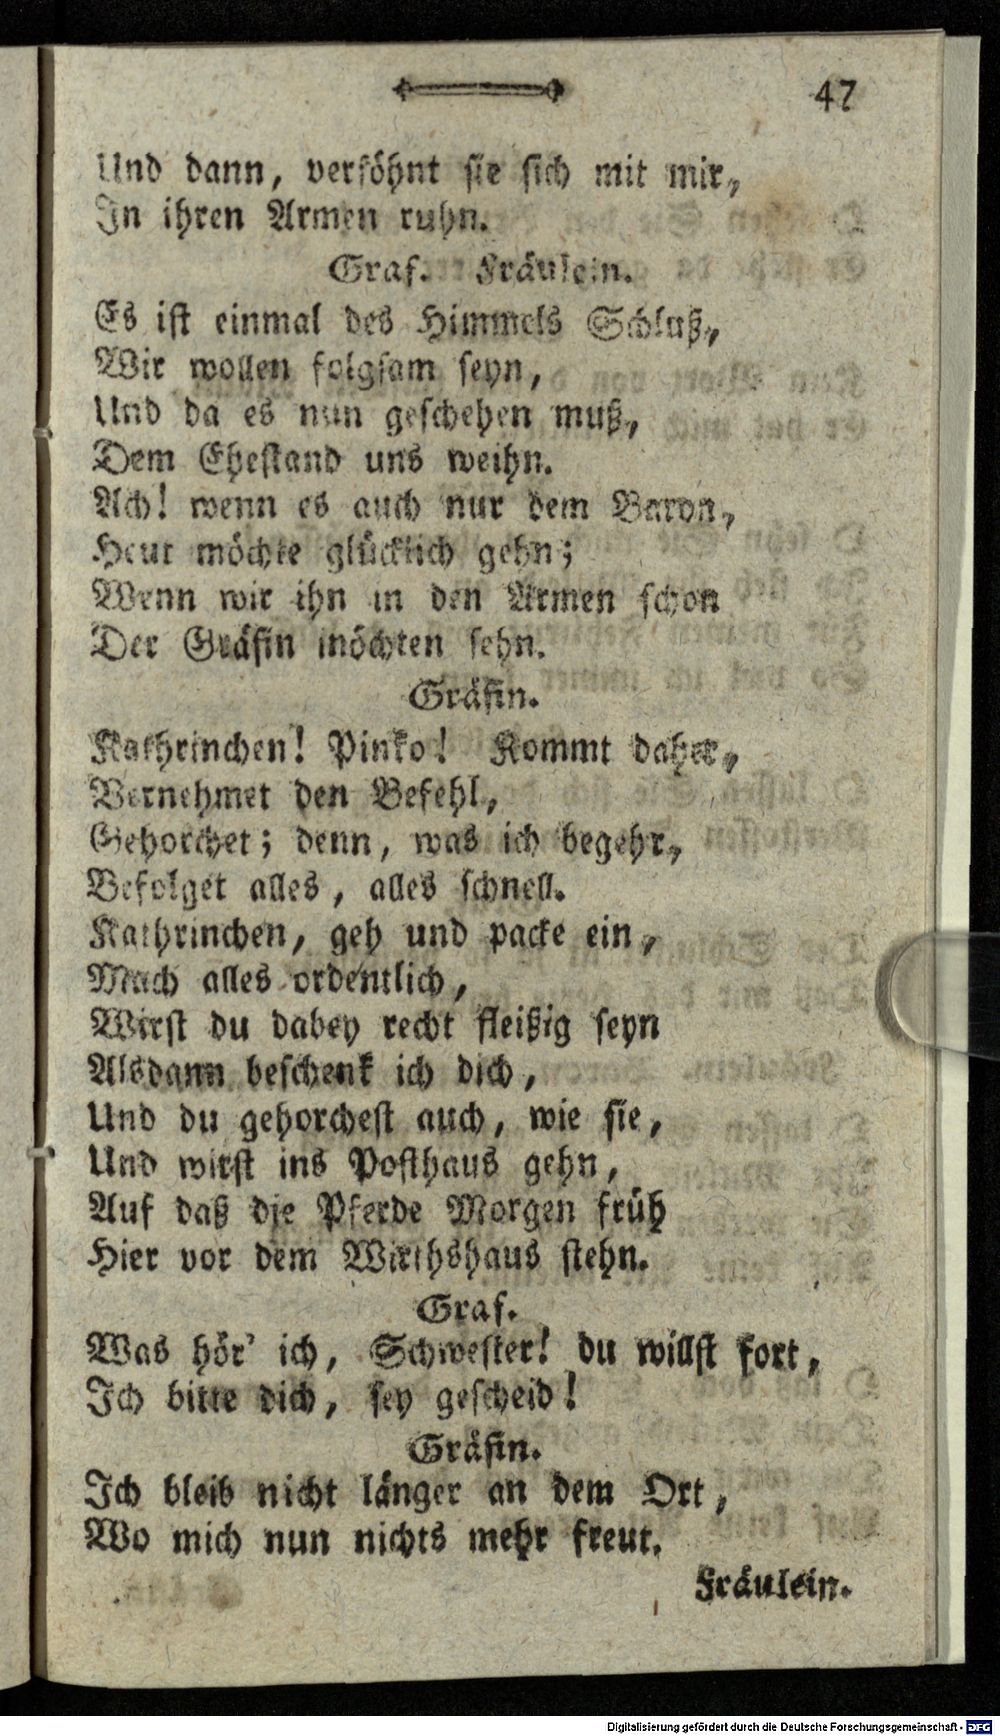 47
Und dann, versöhnt sie sich mit mir,
In ihren Armen ruhn.
Graf. Fräulein.
Es ist einmal des Himmels Schluß,
Wir wollen folgsam seyn,
Und da es nun geschehen muß,
Dem Ehestand uns weihn.
Ach! wenn es auch nur dem Baron,
Heut möchte glücklich gehn;
Wenn wir ihn in den Armen schon
Der Gräfin möchten sehn.
Gräfin.
Kathrinchen! Pinko! Kommt daher,
Vernehmet den Befehl,
Gehorchet; denn, was ich begehr,
Befolget alles, alles schnell.
Kathrinchen, geh und packe ein,
Mach alles ordentlich,
Wirst du dabey recht fleißig seyn
Alsdann beschenk ich dich,
Und du gehorchest auch, wie sie,
Und wirst ins Posthaus gehn,
Auf daß die Pferde Morgen früh
Hier vor dem Wirthshaus stehn.
Graf.
Was hör' ich, Schwester! du willst fort,
Ich bitte dich, sey gescheid!
Gräfin.
Ich bleib nicht länger an dem Ort,
Wo mich nun nichts mehr freut.
Fräulein.
Digitalisierung gefördert durch die Deutsche Forschungsgemeinschaft - DFG